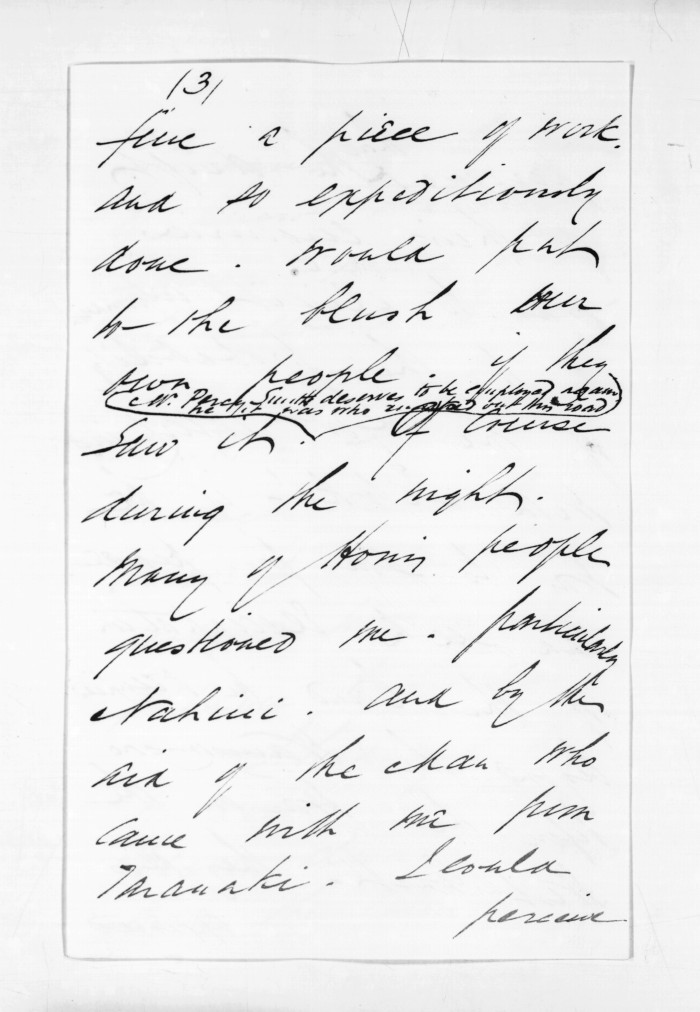 (3)
fine a piece of work.
and so expeditiously
done. would put
to the blush our
own people. if they
Mr. Percy Smith deserves to be employed again
he it was who out this road
Saw it. Of course
during the night.
Many of Honis people
questioned me. particularly
Nahini. and by the
aid of the Man who
came with me from
Taranaki. I could
perceive